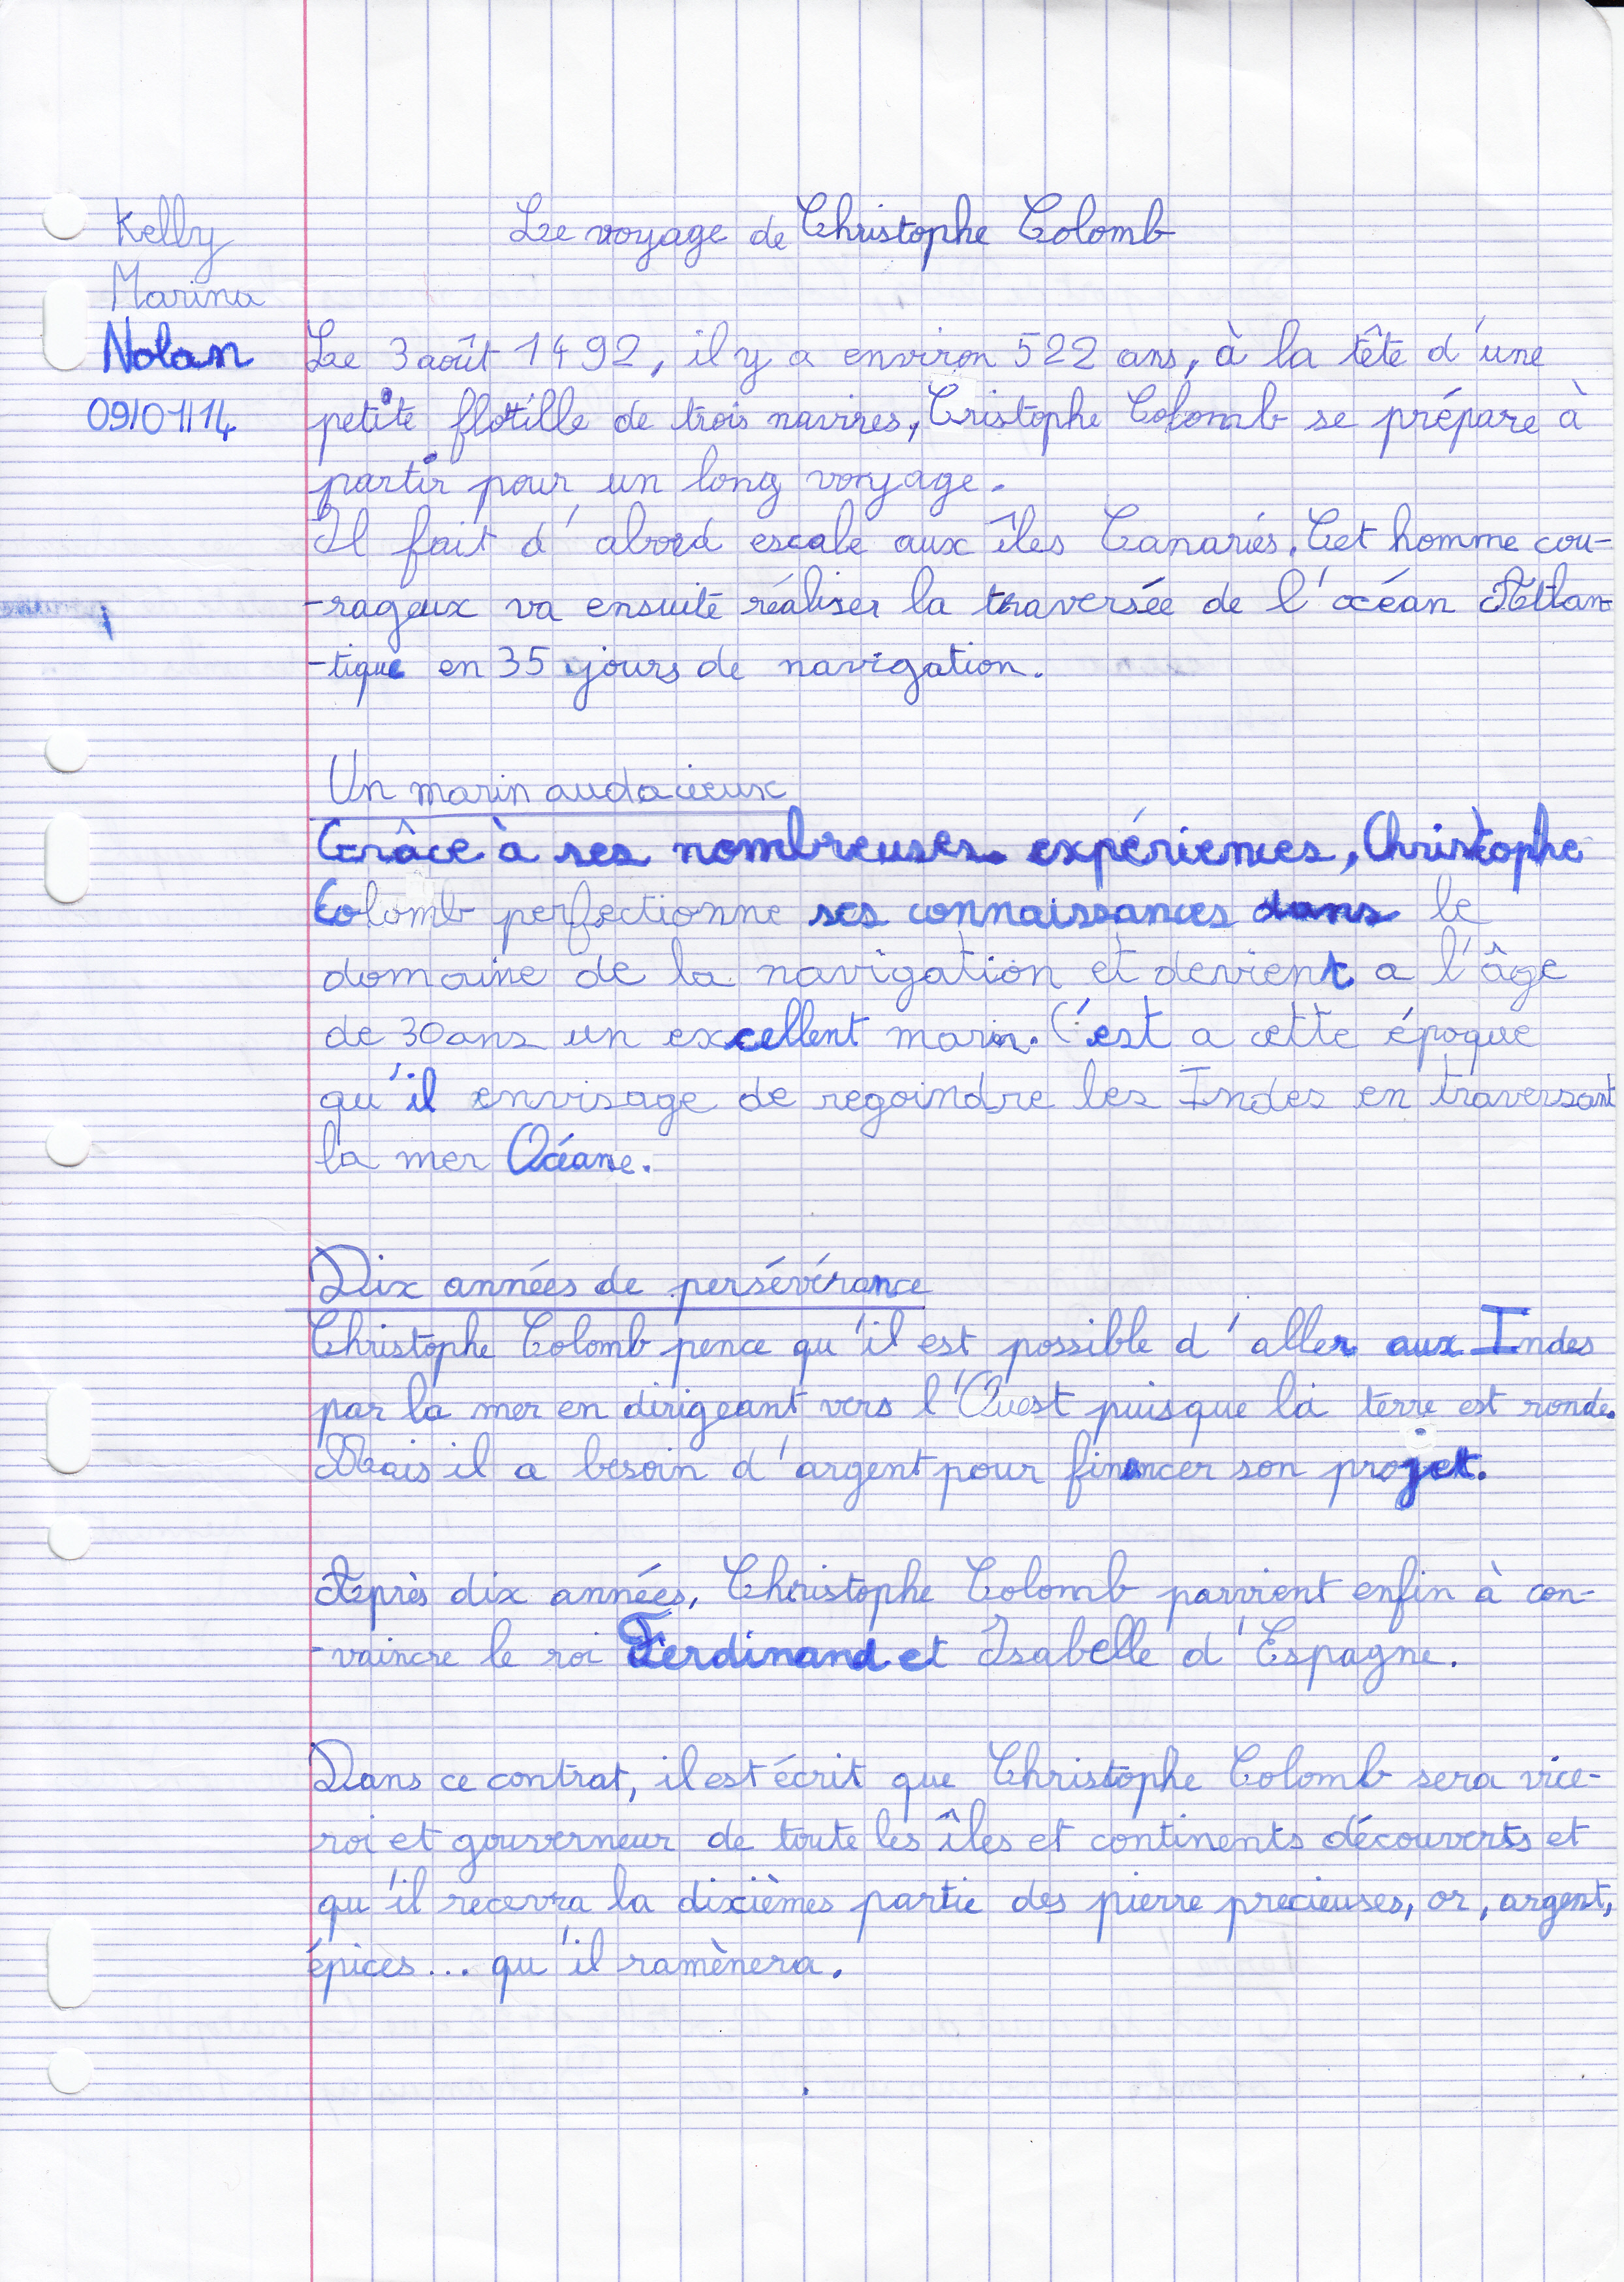 Kelly
Marina
Nolan
09/01/14
Le voyage de Christophe Colomb
Le 3 août 1492, il y a environ 522 ans, à la tête d'une
petite flottille de trois navires, Cristophe Colomb se prépare à
partir pour un long voyage.
Il fait d'abord escale aux îles Canaries. Cet homme cou-
-rageux va ensuite réaliser la traversée de l'océan Atlan-
-tique en 35 jours de navigation.
Un marin audacieux
Grâce à ses nombreuses expériences, Christophe
Colomb perfectionne ses connaissances dans le
domaine de la navigation et devient a l'âge
de 30 ans un excellent marin. C'est a cette époque
qu'il envisage de regoindre les Indes en traversant
la mer Océane.
Dix années de persévérance
Christophe Colomb pence qu'il est possible d'aller aux Indes
par la mer en dirigeant vers l'Ouest puisque la terre est ronde.
Mais il a besoin d'argent pour financer son projet.
Après dix années, Christophe Colomb parvient enfin à con-
-vaincre le roi Ferdinand et Isabelle d'Espagne.
Dans ce contrat, il est écrit que Christophe Colomb sera vice-
roi et gouverneur de toute les îles et continents découverts et
qu'il recevra la dixièmes partie des pierre precieuses, or, argent,
épices... qu'il ramènera.